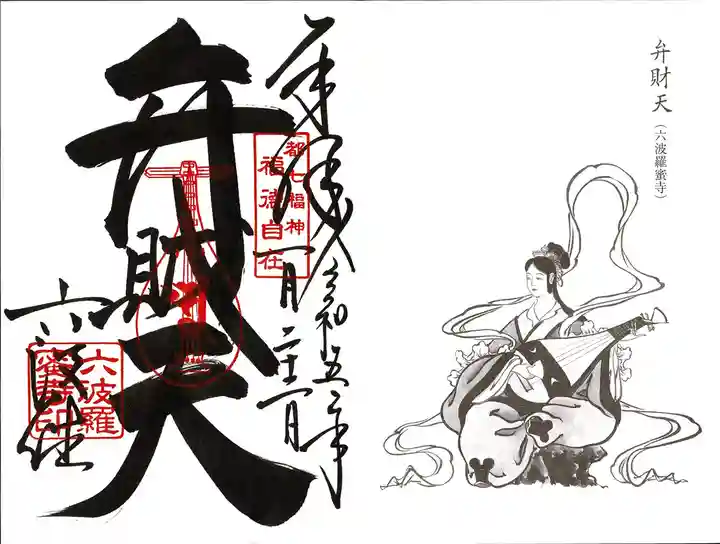 弁財天（六波羅蜜寺）
奉拝
令和五年
一月二十一日
都七福神
福徳自在
弁財天
六波羅
蜜寺印